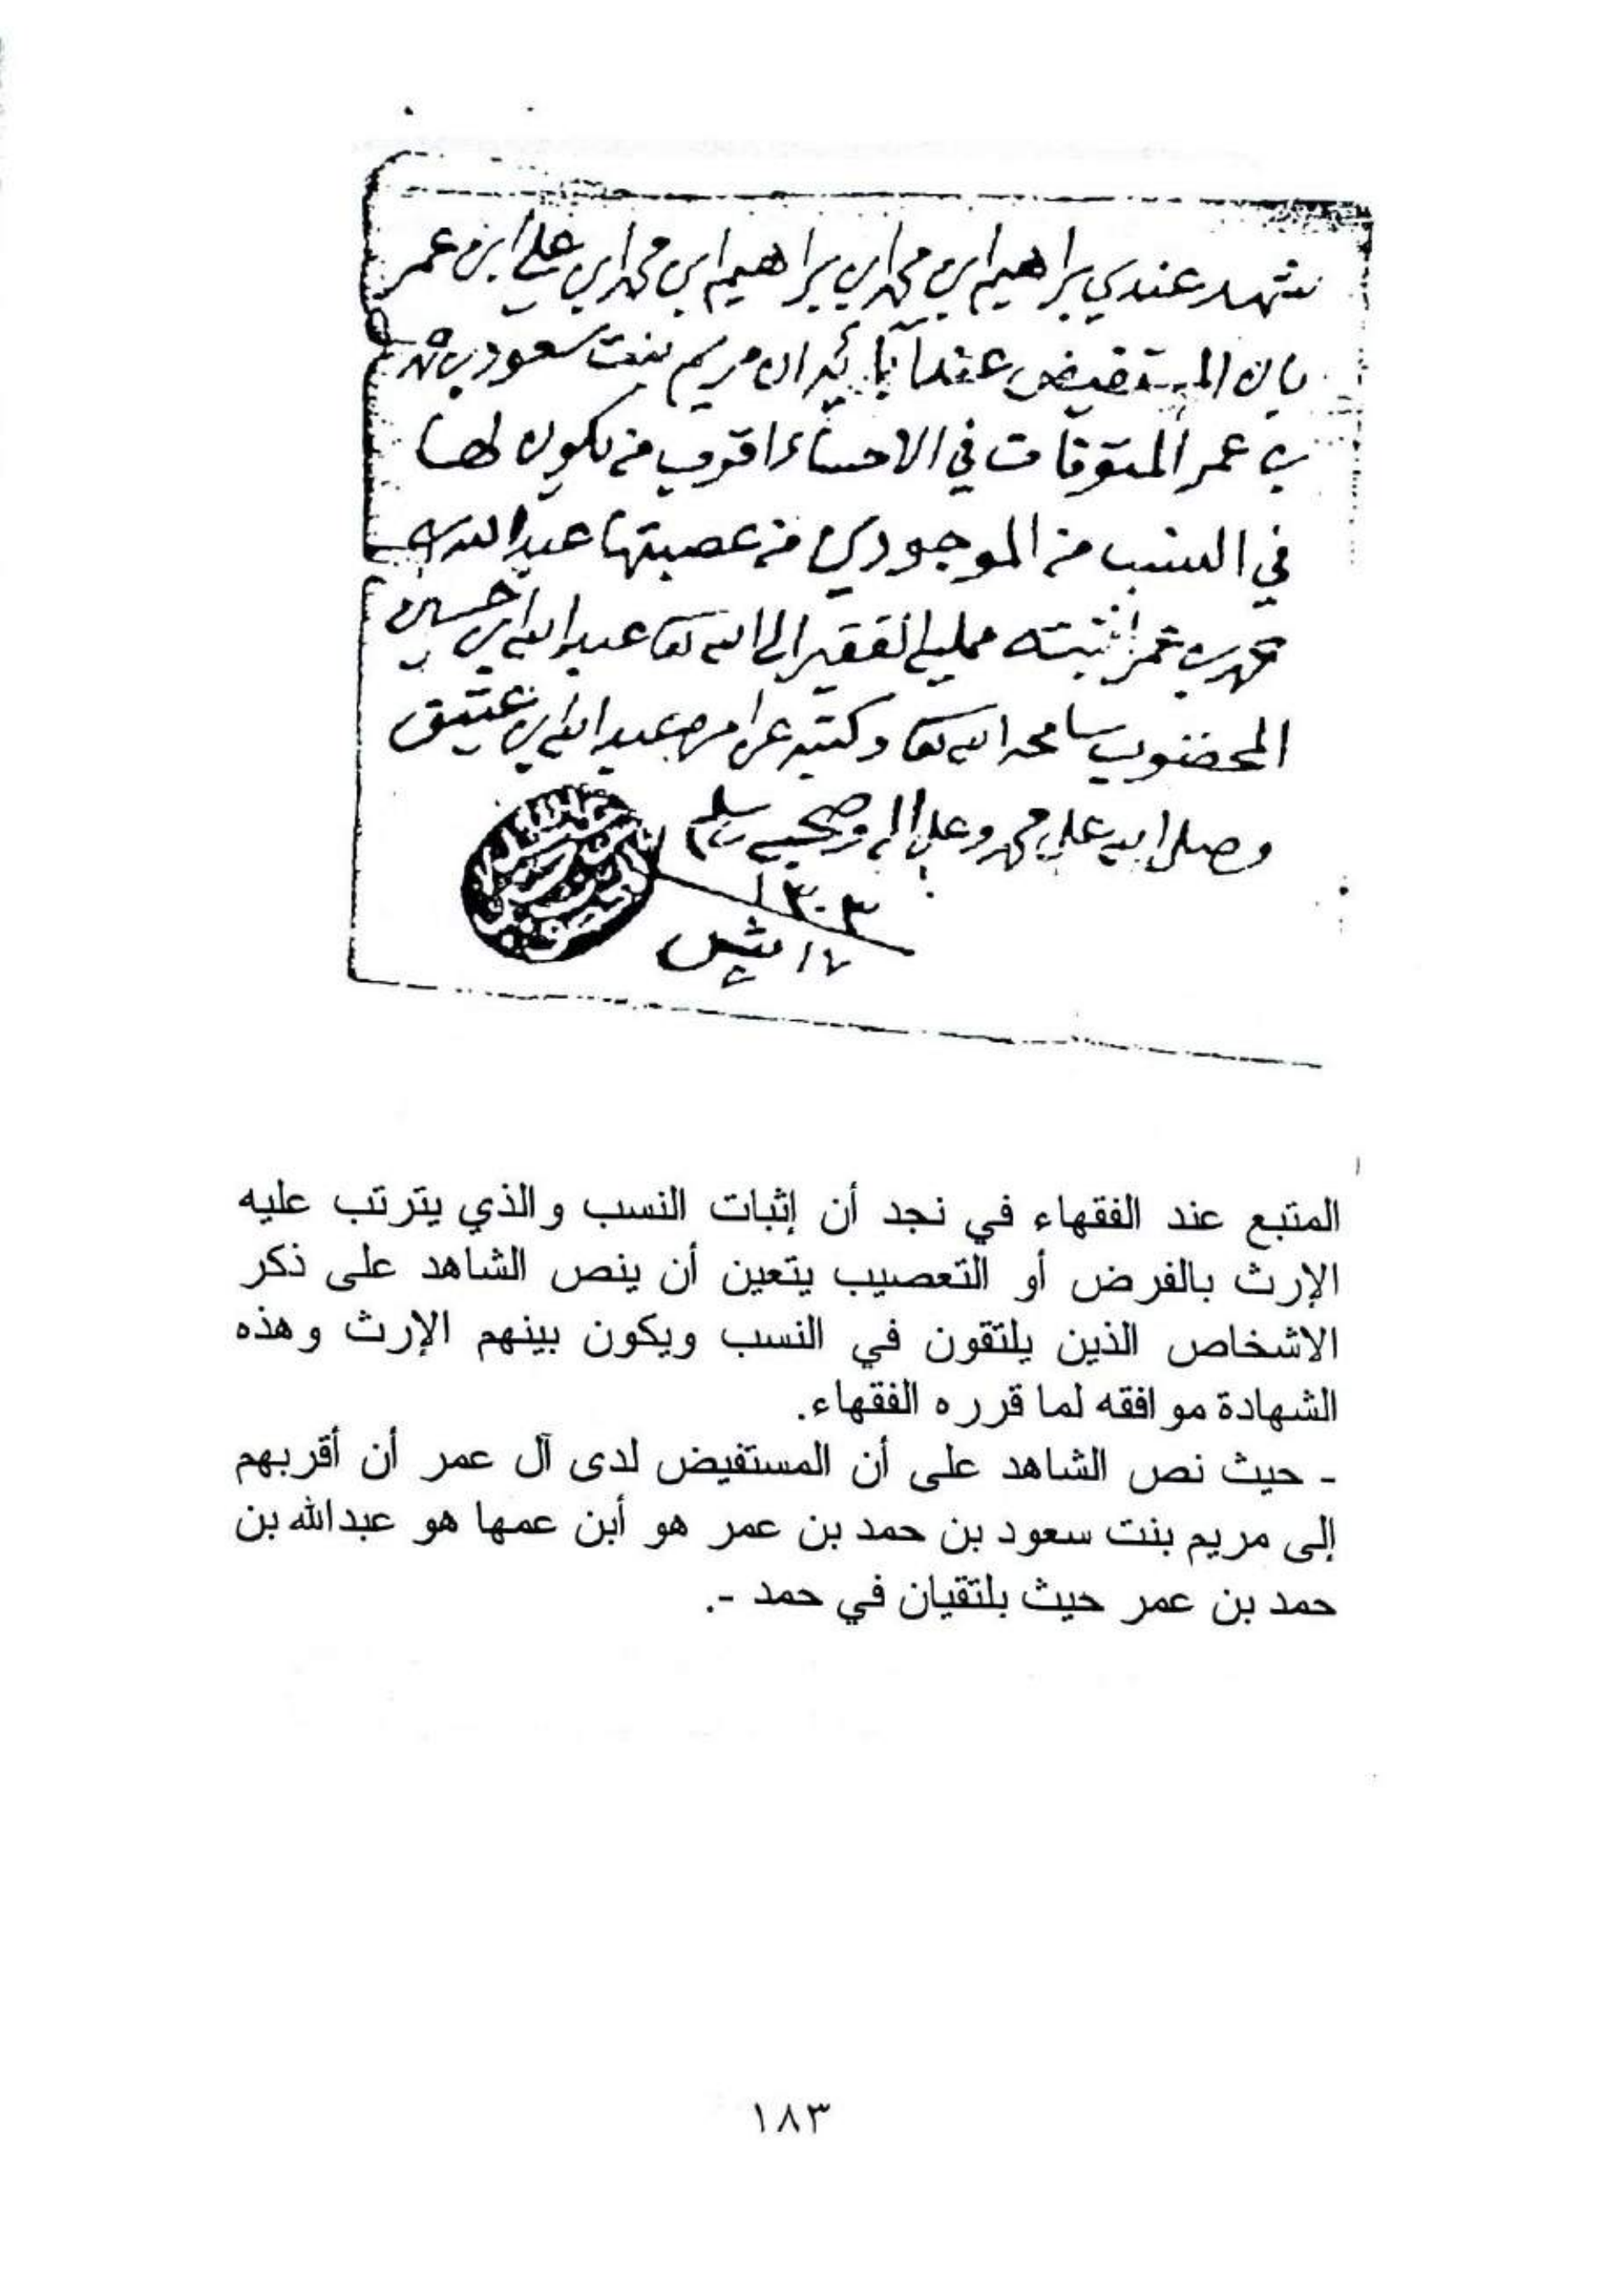 شهد عندي براهيم ابن محمد ابن براهيم ابن محمد ابن علي ابن عمر
بان المستفيض عند آبائه ان مريم بنت سعود بن حمد
بن عمر المتوفات في الاحساء اقرب من يكون لها
في النسب من الموجودين من عصبتها عبدالله بن
حمد بن عمر اثبته ممليه الفقير الى الله تعا عبدالله ابن حسين
المخضوب سامحه الله تعا وكتبه عن امره عبدالله ابن عتيق
وصلى الله على محمد وعلى اله وصحبه وسلم
١٣٠٣
١٧ ش
المتبع عند الفقهاء في نجد أن إثبات النسب والذي يترتب عليه
الإرث بالفرض أو التعصيب يتعين أن ينص الشاهد على ذكر
الاشخاص الذين يلتقون في النسب ويكون بينهم الإرث وهذه
الشهادة موافقه لما قرره الفقهاء.
- حيث نص الشاهد على أن المستفيض لدى آل عمر أن أقربهم
إلى مريم بنت سعود بن حمد بن عمر هو أبن عمها هو عبدالله بن
حمد بن عمر حيث بلتقيان في حمد -.
١٨٣